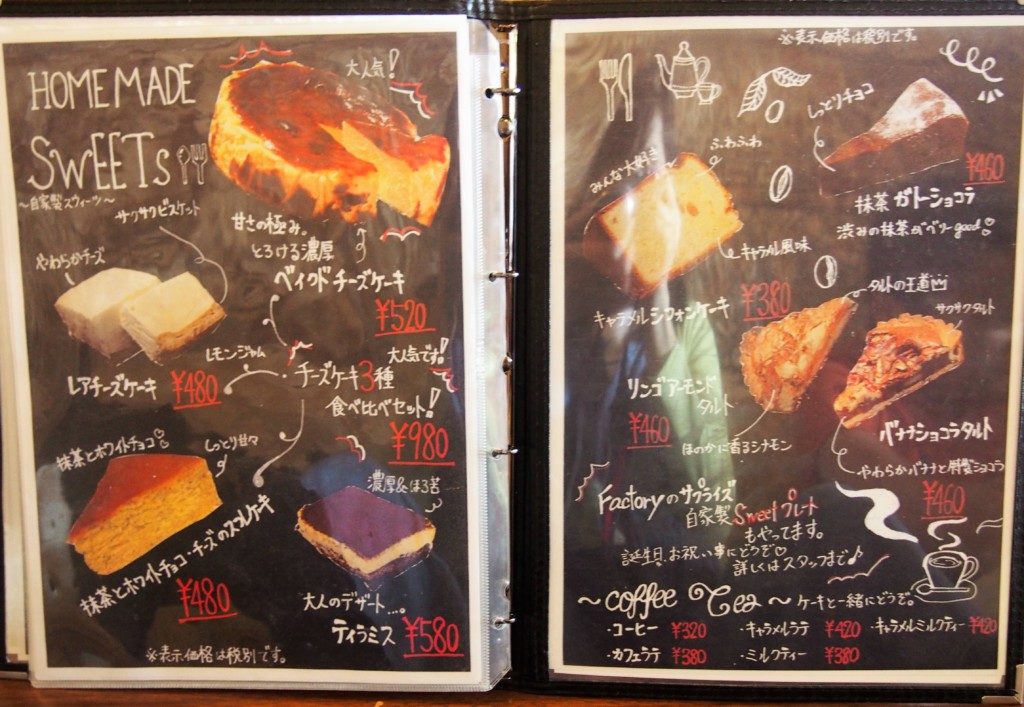 HOMEMADE
SWEETS
～自家製スウィーツ～
大人気!
サクサクビスケット
甘さの極み。
とろける濃厚
ベイクドチーズケーキ
¥520
やわらかチーズ
レアチーズケーキ ¥480
レモンジャム
大人気です!
チーズケーキ3種
食べ比べセット!
¥980
抹茶とホワイトチョコ♡
しっとり甘々
抹茶とホワイトチョコ・チーズのスフレケーキ
¥480
濃厚&ほろ苦
大人のデザート…。
ティラミス ¥580
※表示価格は税別です。
※表示価格は税別です。
しっとりチョコ
¥460
抹茶ガトーショコラ
渋みの抹茶がベリーgood♡
みんな大好き
ふわふわ
キャラメル風味
キャラメルシフォンケーキ ¥380
タルトの王道
サクサクタルト
リンゴアーモンド
タルト
¥460
ほのかに香るシナモン
バナナショコラタルト
やわらかバナナと特製ショコラ
¥460
Factoryのサプライズ
自家製Sweetプレート
もやってます。
誕生日、お祝い事にどうぞ♡
詳しくはスタッフまで♪
～coffee Tea～ケーキと一緒にどうぞ。
・コーヒー ¥320 ・キャラメルラテ ¥420 ・キャラメルミルクティー ¥420
・カフェラテ ¥380 ・ミルクティー ¥380